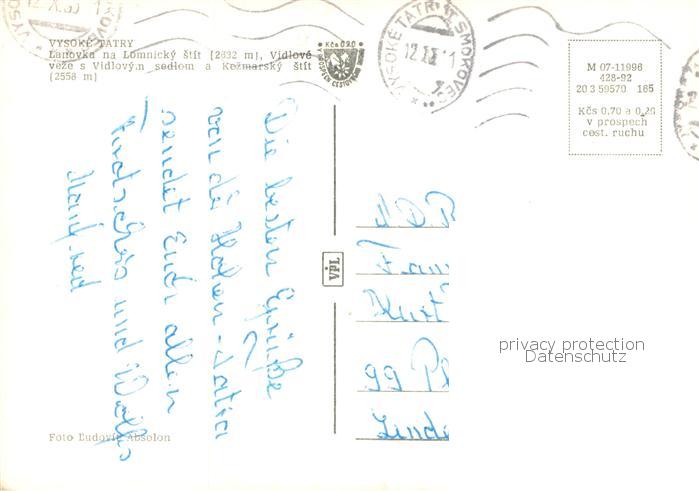 VYSOKÉ TATRY
Lanovka na Lomnický štít (2632 m), Vidlové
veže s Vidlovým sedlom a Kežmarský štít
(2558 m)
Kčs 0,20
VYSOKÉ TATRY 1 SMOKOVEC
M 07-11996
428-92
20 3 59570 165
Kčs 0,70 a 0,20
v prospech
cest. ruchu
Die besten Grüße
von da Hohen-Tatra
sendet Euch allen
und
Manfred
VPL
Fam
Kurt
99 Pl
Foto Ľudovít Absolon
privacy protection
Datenschutz